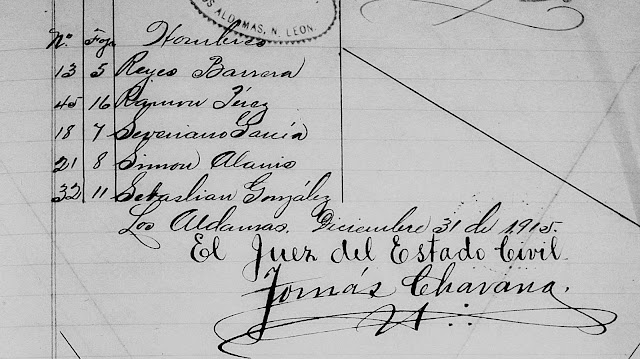 OS ALDAMAS, N. LEON
No. Foja Hombres
13 5 Reyes Barrera
45 16 Ramon Pérez
18 7 Severiano García
21 8 Simon Alanis
32 11 Sebastian González
Los Aldamas, Diciembre 31 de 1915.
El Juez del Estado Civil
Tomás Chavana.